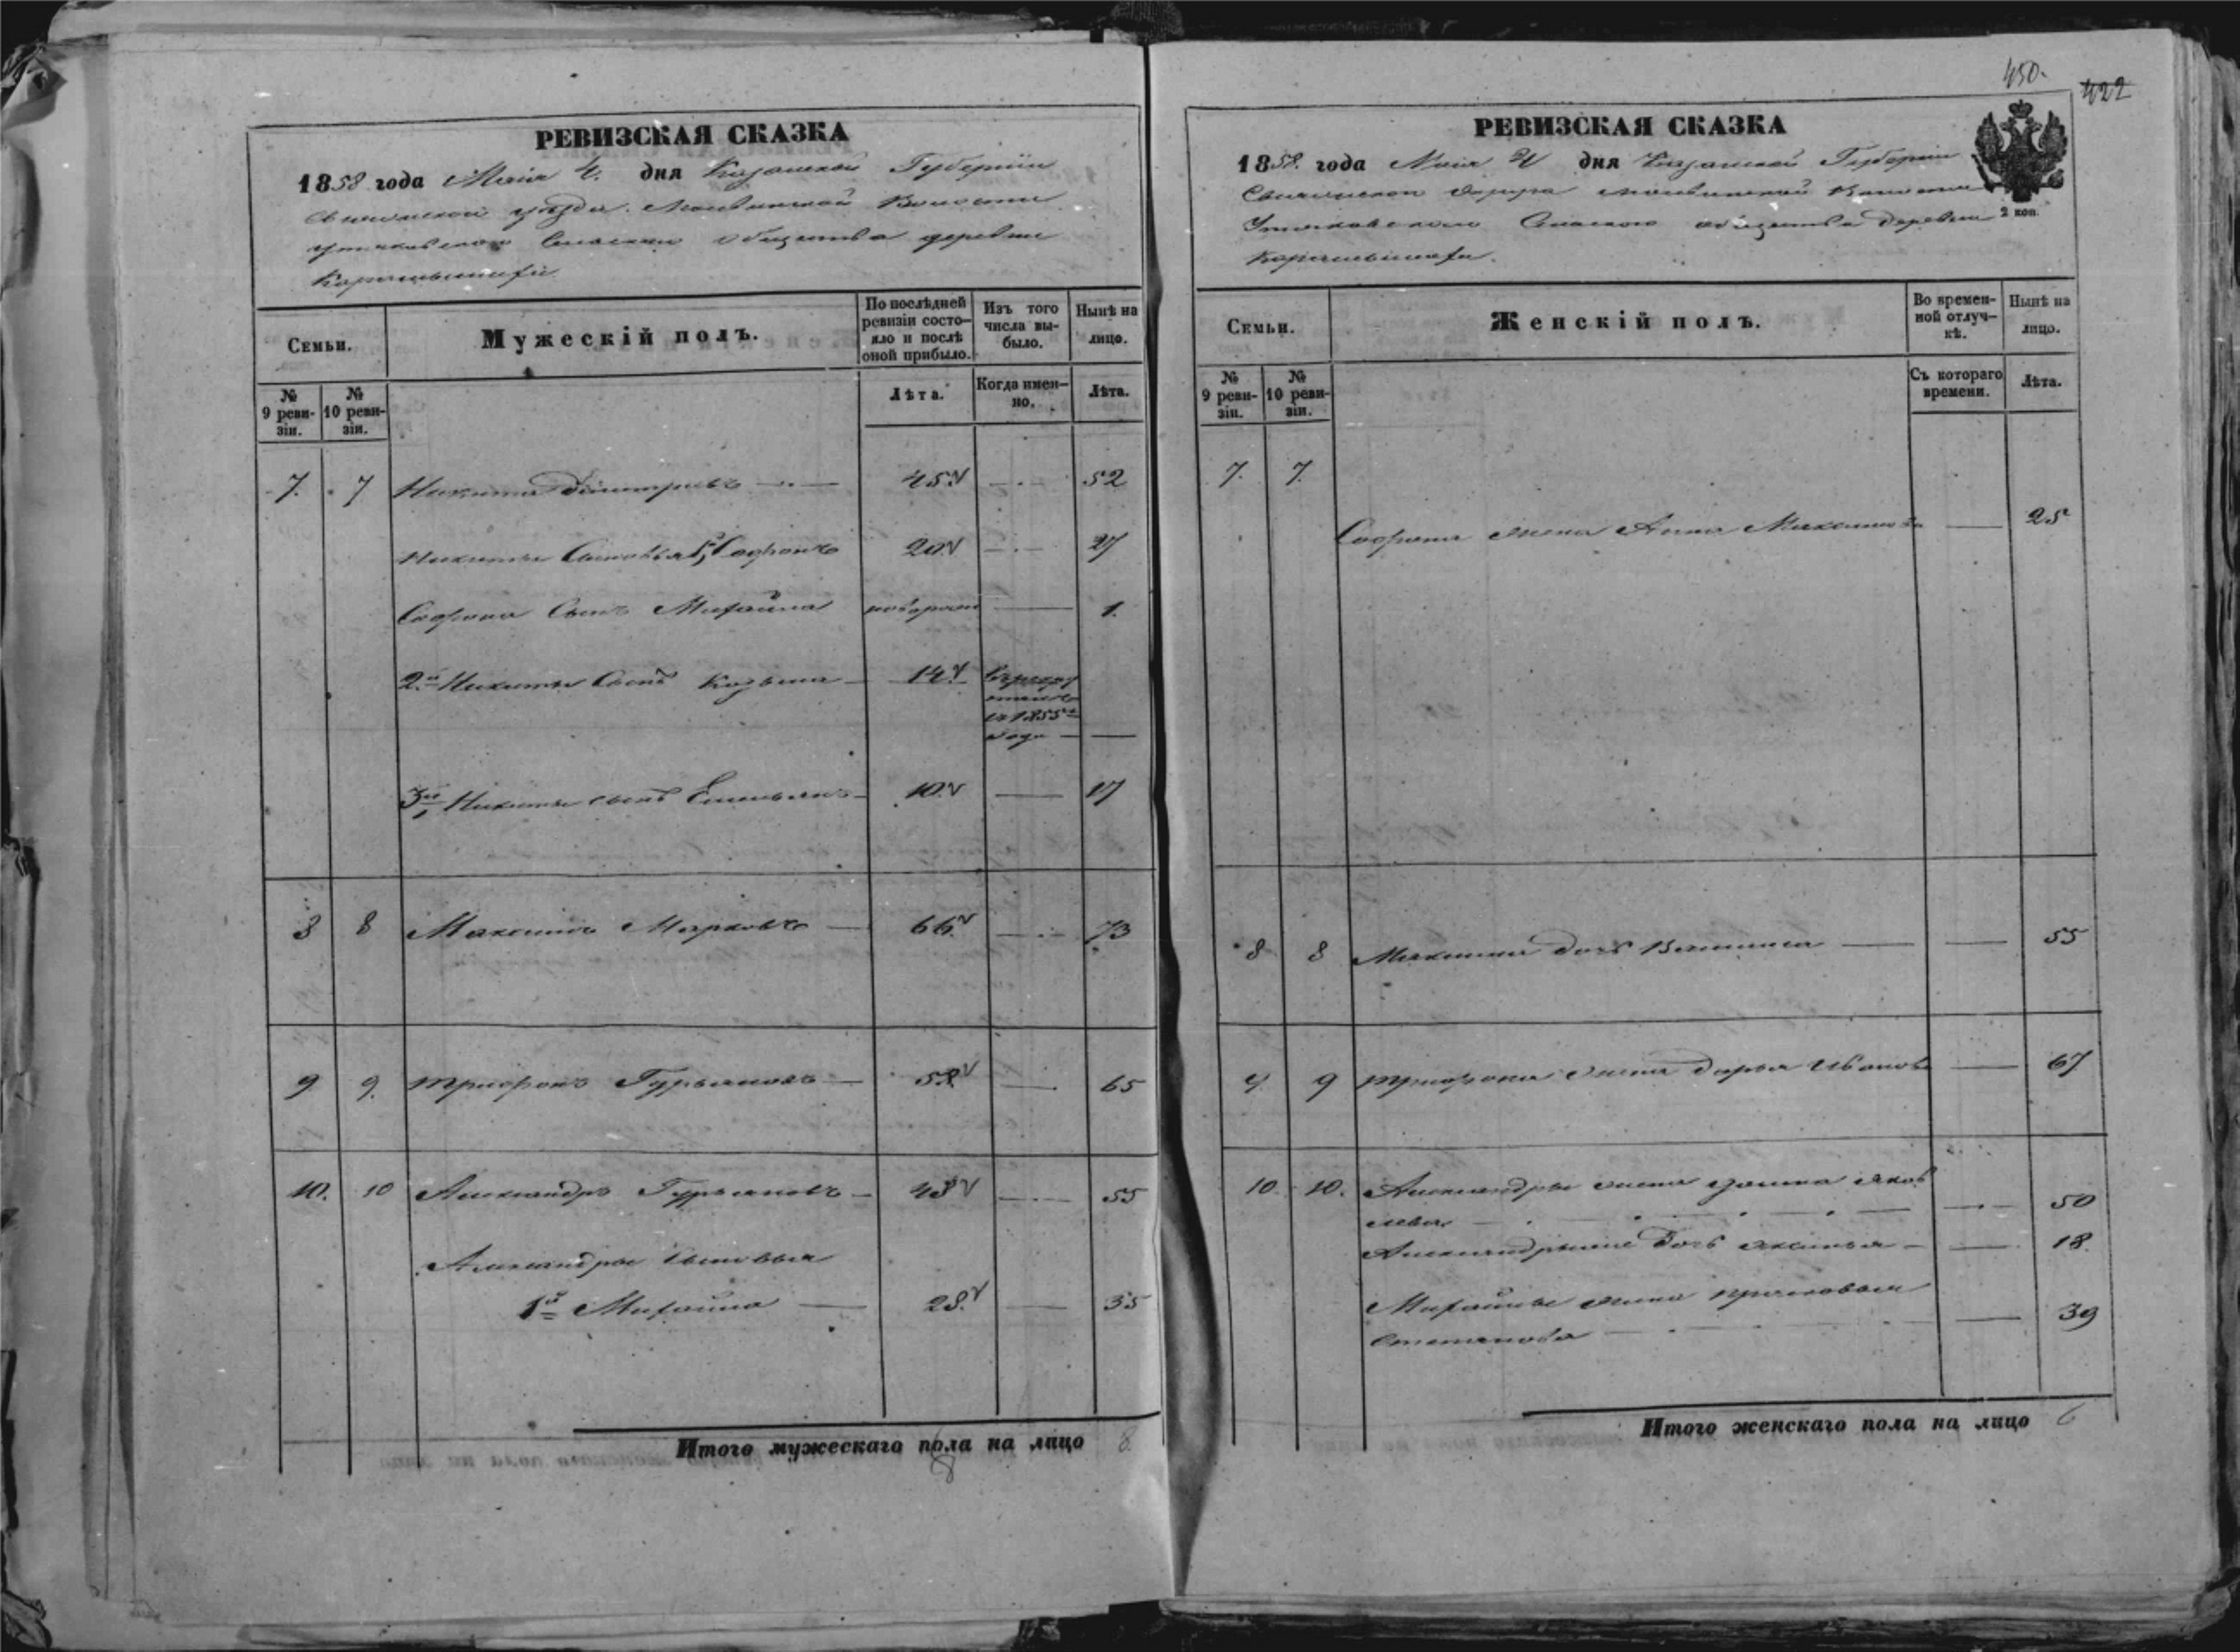 450.
422
РЕВИЗСКАЯ СКАЗКА
1858 года Маія 4. дня Казанской Губерніи
уѣзда. Волости
общества деревни
Семьи.
Мужескій полъ.
По послѣдней ревизіи состояло и послѣ оной прибыло.
Изъ того числа выбыло.
Нынѣ на лицо.
№ 9 ревизіи.
№ 10 ревизіи.
Лѣта.
Когда именно.
Лѣта.
7. 7 Никита Дмитріевъ 45 52
Никиты Сыновья 1й Софронъ 20 27
Софрона Сынъ Михайла новорожд 1.
2й Никиты Сынъ Козьма 14
въ 1855м
года
3й Никиты сынъ Емельянъ 10 17
8 8 Максимъ Марковъ 66 73
9 9. Трифонъ Гурьяновъ 58 65
10. 10 Александръ Гурьяновъ 48 55
Александра сыновья
1й Михайла 28 35
Итого мужескаго пола на лицо 8
8
РЕВИЗСКАЯ СКАЗКА
1858 года Маія 4 дня Казанской Губерніи
Округа Волости
общества деревни
2 коп.
Семьи.
Женскій полъ.
Во временной отлучкѣ.
Нынѣ на лицо.
№ 9 ревизіи.
№ 10 ревизіи.
Съ котораго времени.
Лѣта.
7. 7.
Софрона жена Анна Максимова 25
8 8 Максима дочь 55
9 9 Трифона жена Дарья Иванова 67
10 10. Александры жена Яков
лева 50
дочь Аксинья 18.
Михайлы жена Прасковья
Степанова 39
Итого женскаго пола на лицо 6